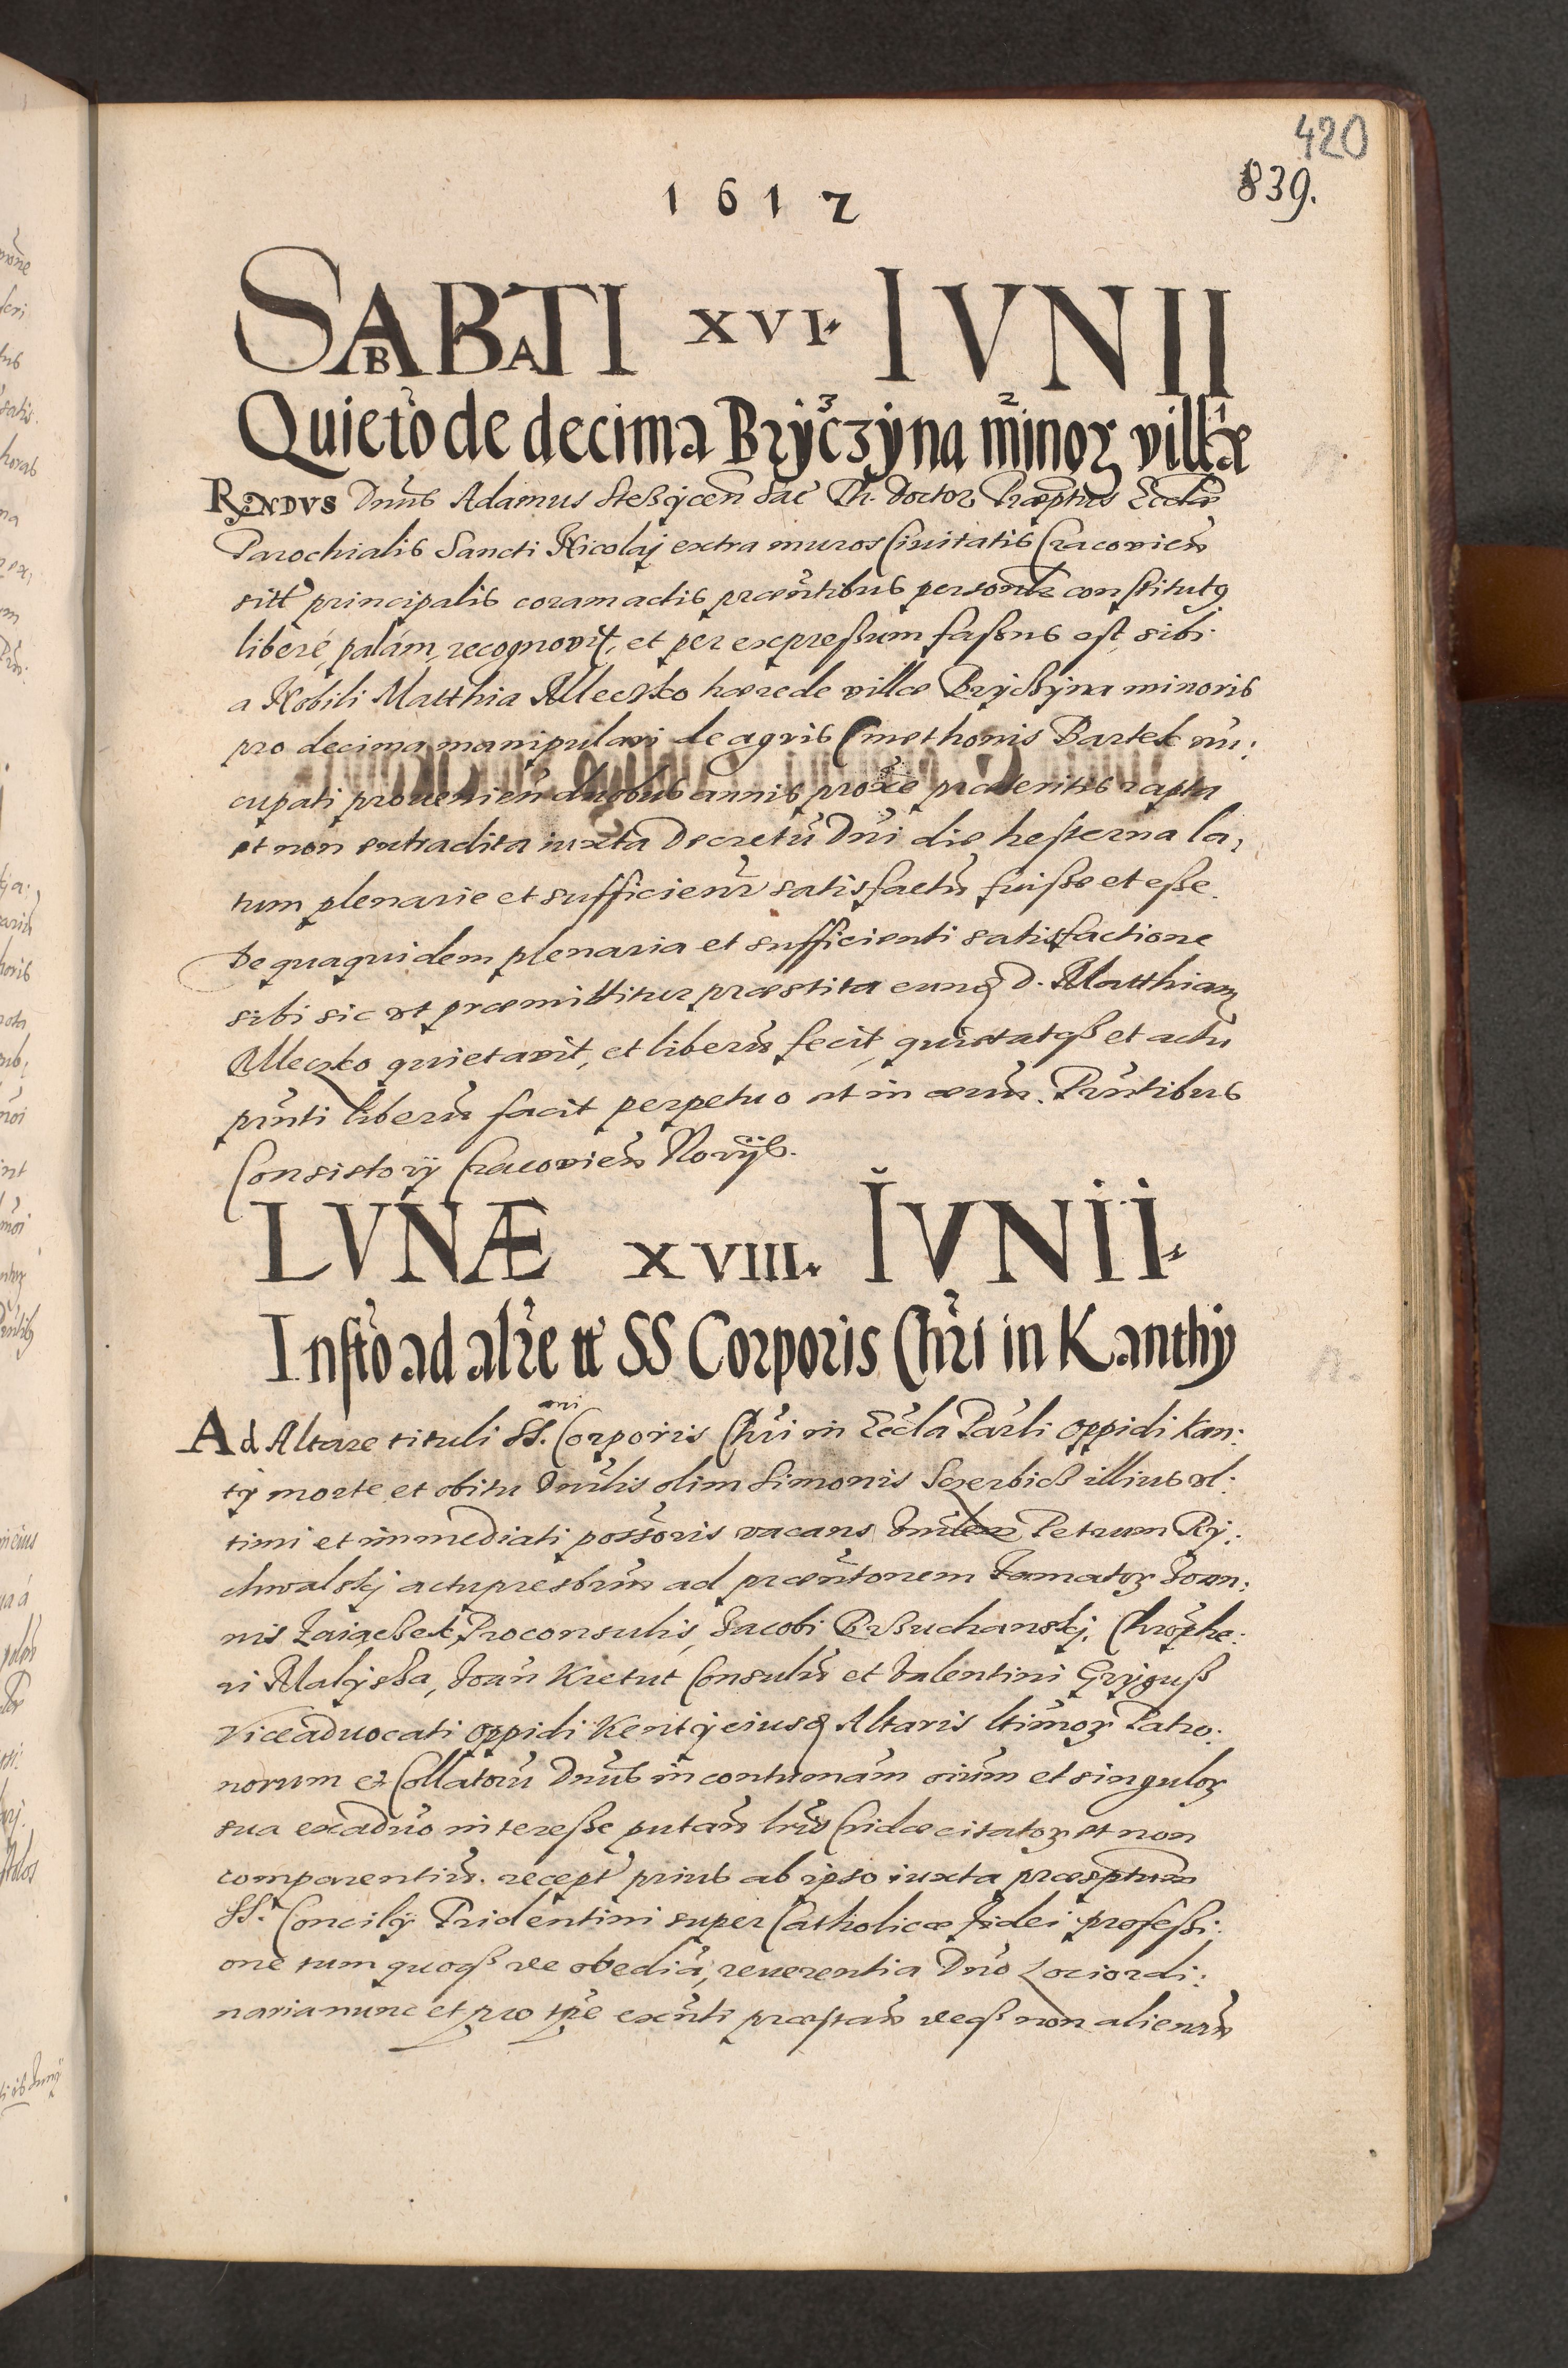 420
839.
1612
SABBATI XVI. IVNII
Quieto de decima Bryczyna minor villæ
RNDVS Dnus Adamus Steßÿcen Sac Th. Doctor Præptus Eccłæ
Parochialis Sancti Nicolaj extra muros Ciuitatis Cracovien
sitt principalis coram actis præntibus personłr constitutus
liberé, palám, recognovit, et per expreßum faßus est, sibi
a Nobili Matthia Mleczko hærede villæ Brÿcßÿna minoris
pro decima manipulari de agris Cmethonis Bartek nu:
cupati prouenien duobus annis proxe præteritis rapta
et non extradita iuxta Decretū Dni die hesterna la,
tum plenarie et sufficienr satisfactū fuiße et eße.
De quaquidem plenaria et sufficienti satisfactione
sibi sic vt præmittitur præstita eunq D. Matthiam
Mleczko quietavit, et liberū fecit, quietatqß et actu
prnti liberū facit perpetuo et in æuū. Prntibus
Consistorÿ Cracovien Norÿs.
LVNÆ XVIII. IVNII.
Insto ad alre tt SS Corporis Chri in Kanthÿ
Ad Altare tituli SS. Corporis Chri in Eccla Parli oppidi Kan:
tÿ morte et obitu Dnulis olim Simonis Sczerbicß illius vl:
timi et immediati possoris vacans Petrum Rÿ:
chwalskj actu presbrum ad præntonem Famator Joan:
nis Zaigeßek, Proconsulis, Jacobi Brßuchanskj, Chrophe:
ri Malÿska, Joan Kretut Consulū et Valentini Grÿguß
Viceaduocati oppidi Kentÿ eiusq Altaris ltimor Patro:
norum et Collatorū Dnus in contumam oium et singulor
sua exaduo intereße putan lris Cridæ citator et non
comparentiū. recept prius ab ipso iuxta præsptum
SS. Concilÿ Tridentini super Catholicæ Fidei profeßi:
one tum quoqß de obedia, reuerentia Dno Lociordi:
naria nunc et pro tpe exnti præstan deqß non alienan